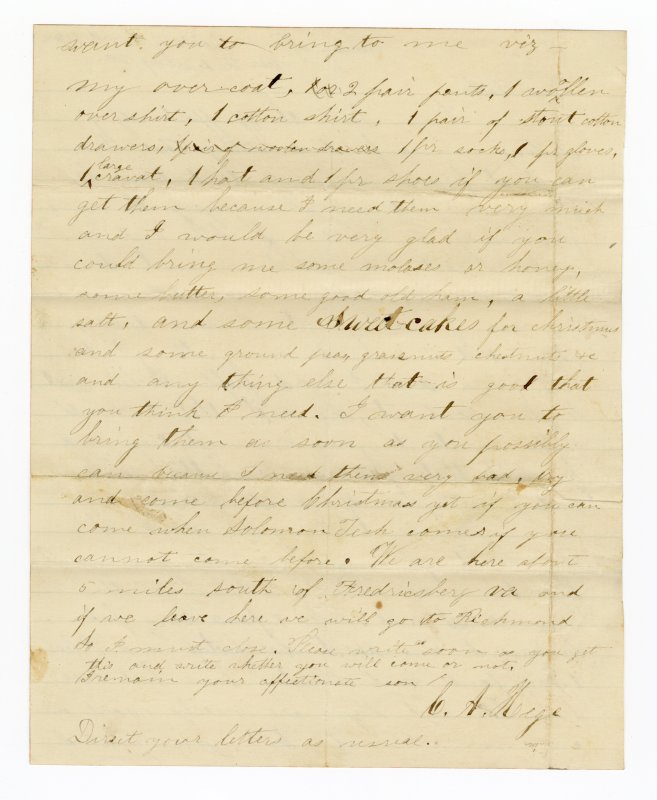 want you to bring to me viz —
my over coat, 1 or 2 pair pents, 1 woollen
over shirt, 1 cotton shirt, 1 pair of stout cotton
drawers, 1 pair of woolen drawers 1 pr socks, 1 pr gloves,
1 large cravat, 1 hat and 1 pr shoes if you can
get them because I need them very much
and I would be very glad if you
could bring me some molases or honey,
some butter, some good old ham, a little
salt, and some cakes for christmas
and some ground peas, grassnuts, chestnuts &c
and any thing else that is good that
you think I need. I want you to
bring them as soon as you possibly
can because I need them very bad, try
and come before Christmas yet if you can
come when Solomon Tesh comes if you
cannot come before. We are here about
5 miles south of Fredricsberg va and
if we leave here we will go to Richmond
So I must close. Please write soon as you get
this and write whether you will come or not.
I remain your affectionate son
C. A. Hege
Direct your letters as usual.